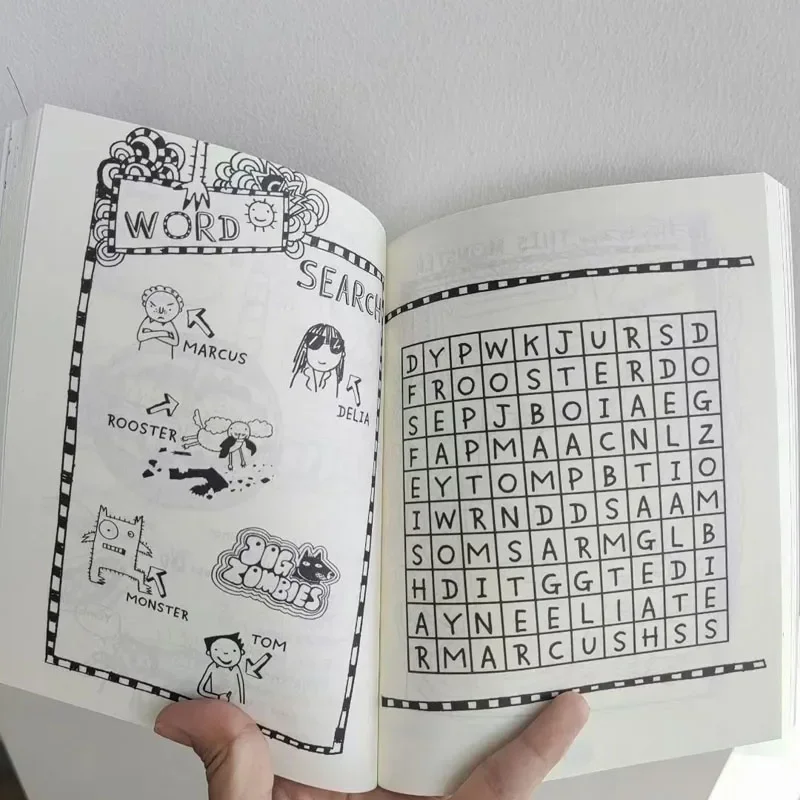 WORD
SEARCH
MARCUS
DELIA
ROOSTER
MONSTER
DOG
ZOMBIES
TOM
D Y P W K J U R S D
F R O O S T E R D O
S E P J B O I A E G
F A P M A A C N L Z
E Y T O M P B T I O
I W R N D D S A A M
S O M S A R M G L B
H D I T G G T E D I
A Y N E E L I A T E
R M A R C U S H S S